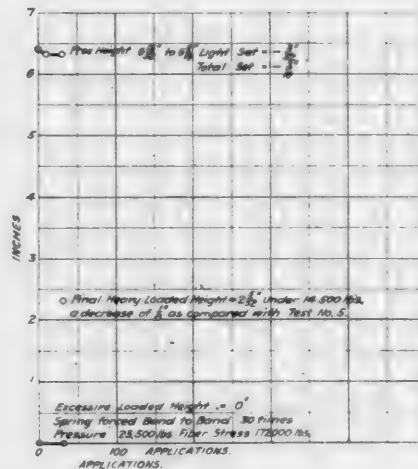 6
5
4
3
2
1
0
INCHES
Free Height to Light Set = -
Total Set = -
Final Heavy Loaded Height = under 14,500 lbs,
a decrease of as compared with Test No. 5.
Excessive Loaded Height = 0"
Spring forced Band to Band 30 times
Pressure 23,500 lbs Fiber Stress 172000 lbs,
0 100 APPLICATIONS.
APPLICATIONS.